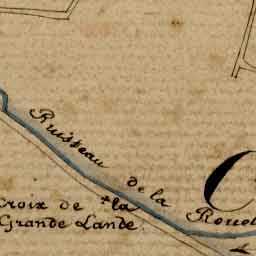 Ruisseau de la
Croix de la
Grande Lande